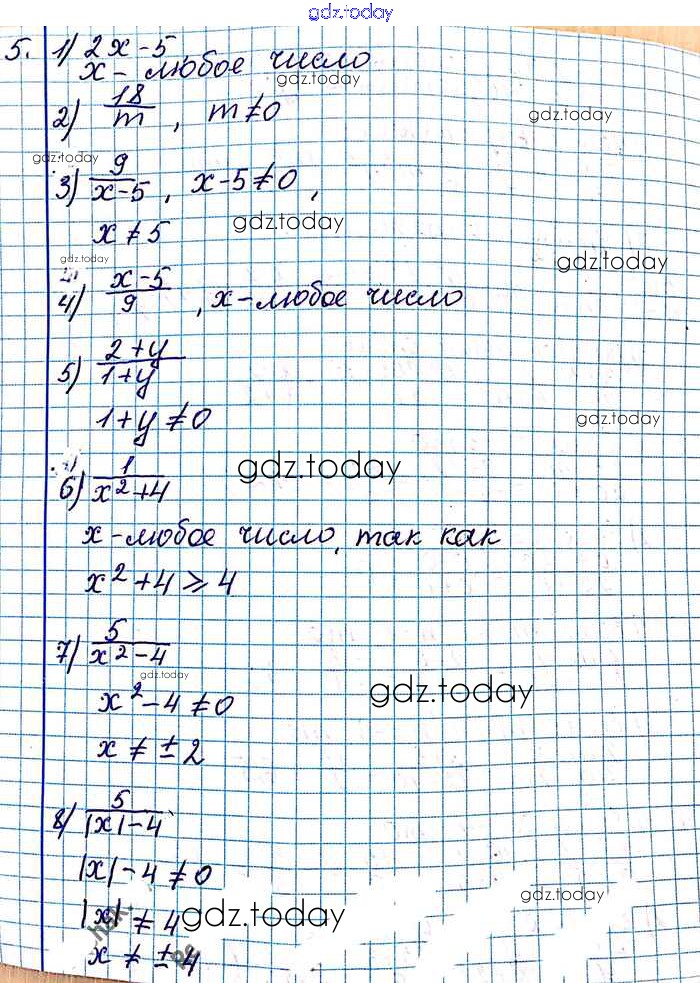 gdz.today
5. 1) 2x-5
x - любое число
gdz.today
2) 18/m, m≠0
gdz.today
gdz.today
3) 9/(x-5), x-5≠0,
x≠5
gdz.today
gdz.today
gdz.today
4) (x-5)/9, x-любое число
5) (2+y)/(1+y)
1+y≠0
gdz.today
6) 1/(x²+4)
gdz.today
x-любое число, так как
x²+4⩾4
7) 5/(x²-4)
gdz.today
gdz.today
x²-4≠0
x≠±2
8) 5/(|x|-4)
|x|-4≠0
gdz.today
|x|≠4
gdz.today
x≠±4